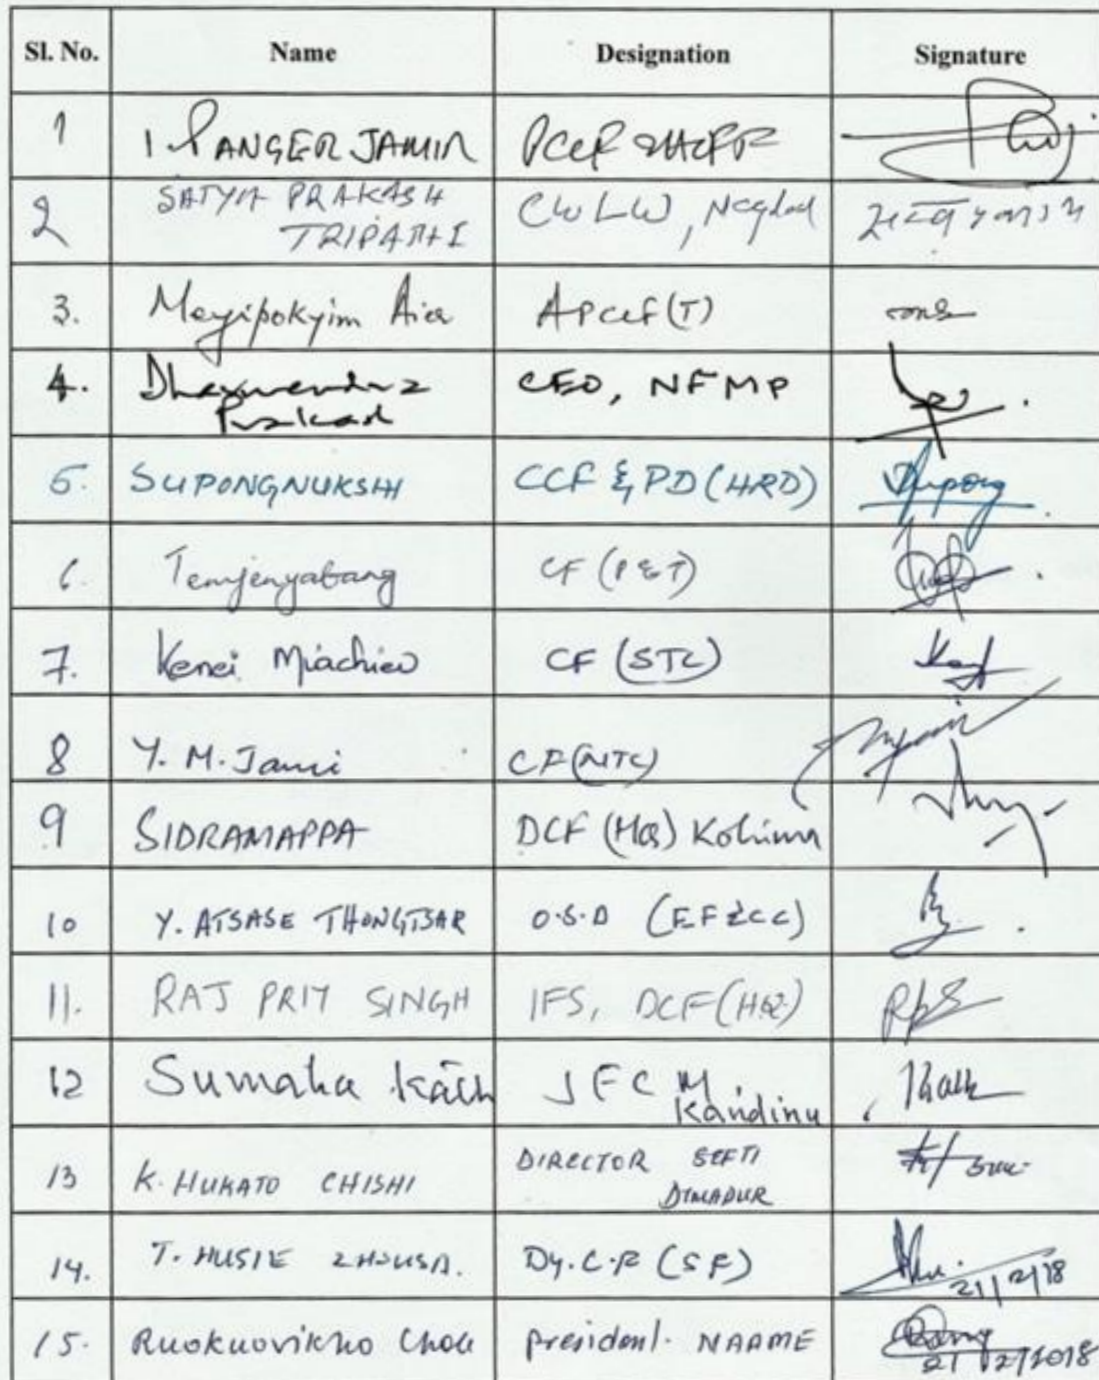 Sl. No. Name Designation Signature
1 I. PANGER JAMIR PCCF & HOFF
2 SATYA PRAKASH
TRIPATHI CWLW, Nagaland
3. Moyipokyim Aier APCCF(T)
4. Dharmendra
Prakash CEO, NFMP
5. SUPONGNUKSHI CCF & PD (HRD) Supong
6. Temjenyabang CF (P&T)
7. Kenei Miachieo CF (STC)
8 Y. M. Jami CF(NTC)
9 SIDRAMAPPA DCF (HQ) Kohima
10 Y. ATSASE THONGTSAR O.S.D (EF&CC)
11. RAJ PRIY SINGH IFS, DCF (HQ) RPS
12 Sumaha JFC M
Kandinu
13 K. HUKATO CHISHI DIRECTOR SEFTI
DIMAPUR
14. T. HUSIE ZHOUSA. Dy. C.F (SF) 21/2/18
15. Ruokuovikho Chale President. NAAME 21/02/2018